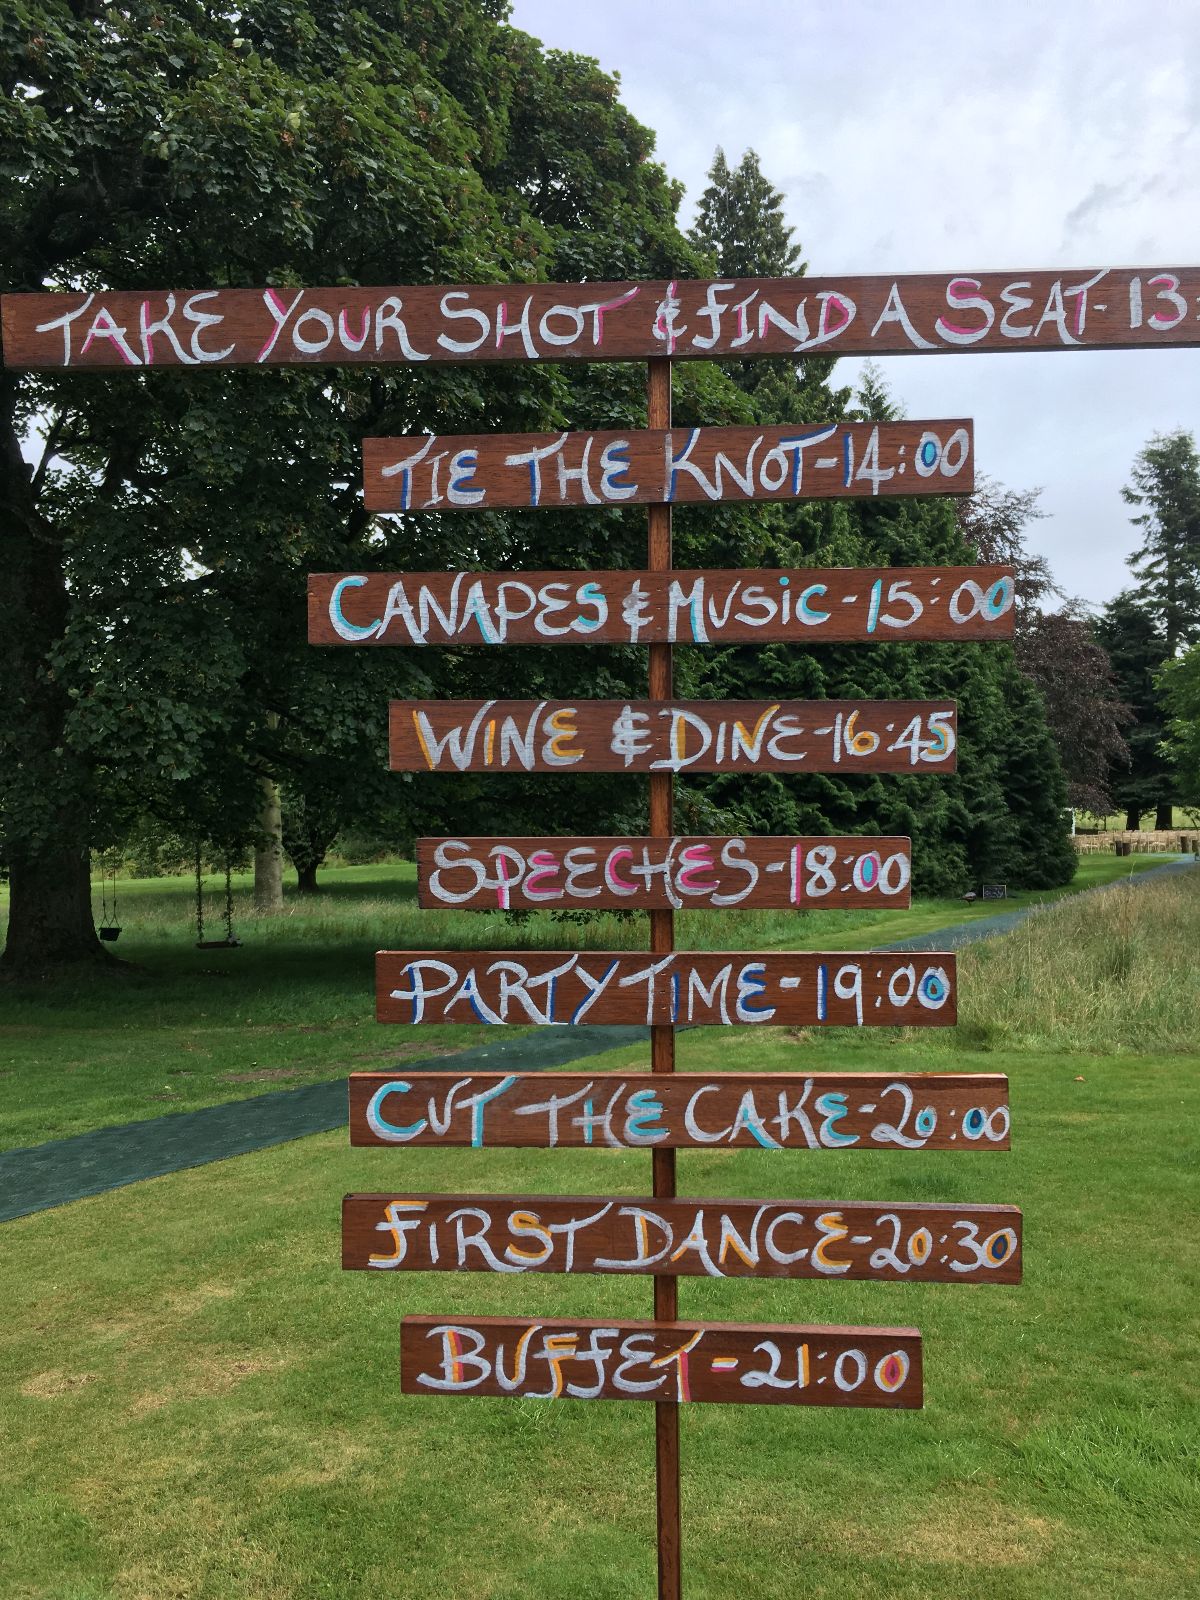 TAKE YOUR SHOT & FIND A SEAT - 13
TIE THE KNOT - 14:00
CANAPES & MUSIC - 15:00
WINE & DINE - 16:45
SPEECHES - 18:00
PARTY TIME - 19:00
CUT THE CAKE - 20:00
FIRST DANCE - 20:30
BUFFET - 21:00